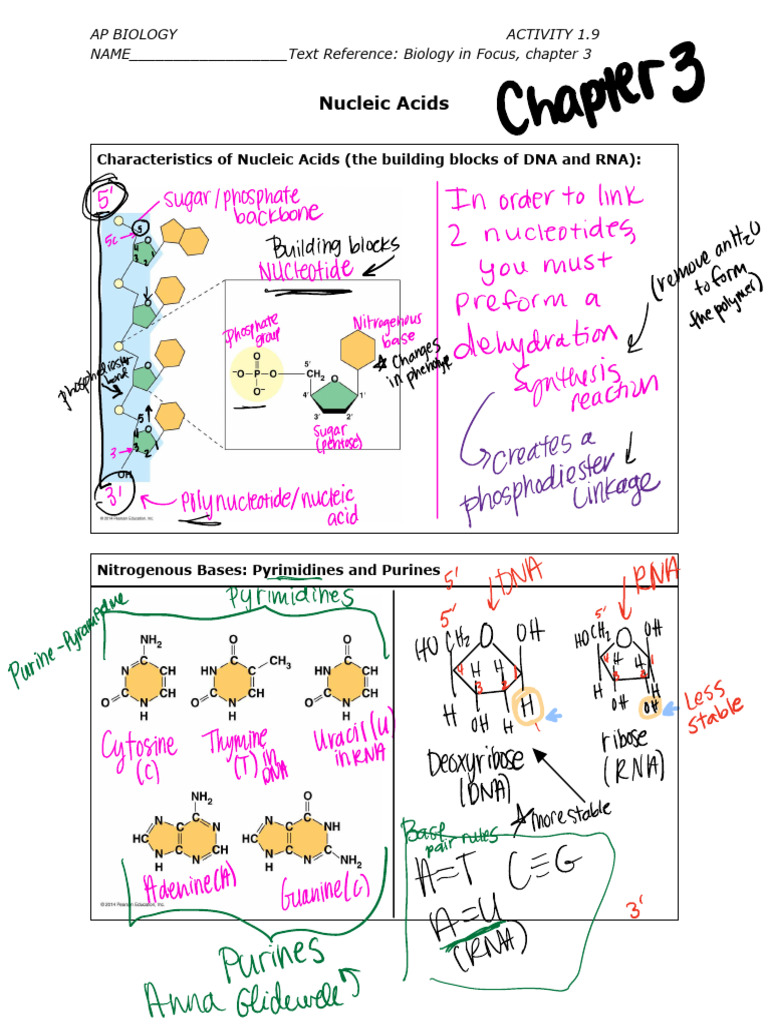 AP BIOLOGY ACTIVITY 1.9
NAME__________________Text Reference: Biology in Focus, chapter 3
Nucleic Acids
Chapter 3
Characteristics of Nucleic Acids (the building blocks of DNA and RNA):
5'
sugar/phosphate
backbone
5c
5
O
4
1
3
2
Building blocks
Nucleotide
Phosphate
group
Nitrogenous
base
Changes
in phenotype
O
⁻O P O
O⁻
5'
CH₂
O
4'
1'
3'
2'
Sugar
(pentose)
phosphodiester
bond
5
O
4
1
3
2
3
OH
3'
Polynucleotide/nucleic
acid
© 2014 Pearson Education, Inc.
In order to link
2 nucleotides,
you must
Preform a
dehydration
Synthesis
reaction
(remove an H2O
to form
the polymer)
Creates a
phosphodiester
Linkage
Nitrogenous Bases: Pyrimidines and Purines
Purine-Pyramidine
Pyrimidines
NH₂
N C CH
C CH
O N
H
O
HN C C CH₃
C CH
O N
H
O
HN C CH
C CH
O N
H
Cytosine
(C)
Thymine
(T) in
DNA
Uracil(U)
in RNA
NH₂
N C C N
HC
N C N CH
H
O
N C C NH
HC
N C N C NH₂
H
Adenine(A)
Guanine(C)
© 2014 Pearson Education, Inc.
Purines
Anna Glidewell
5'
DNA
5'
HO CH2 O OH
4 H H 1
3 2
H OH H H
Deoxyribose
(DNA)
more stable
RNA
5'
HOCH2 O OH
4 H H 1
3 2
H OH H
OH
Less
stable
ribose
(RNA)
Base
pair rules
A=T C≡G
A=U
(RNA)
3'